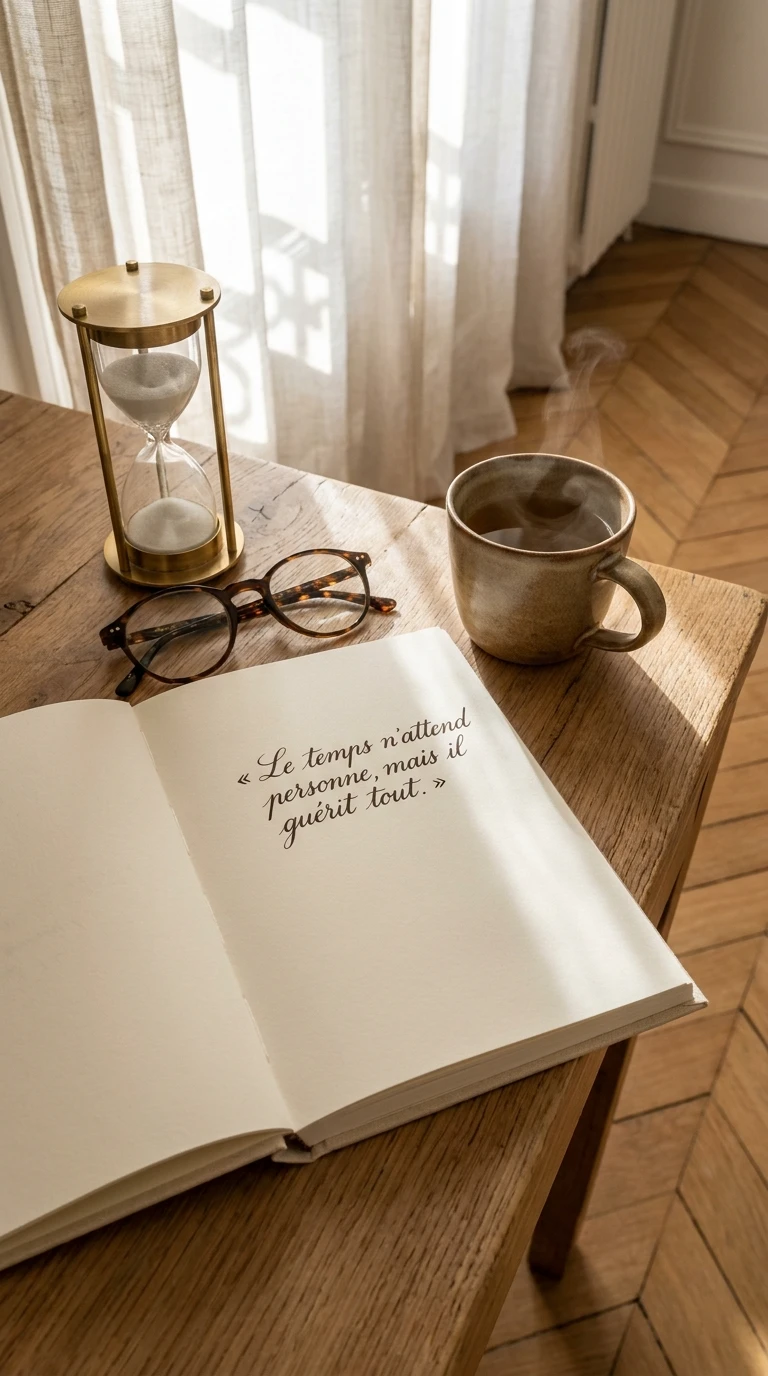 « Le temps n'attend
personne, mais il
guérit tout. »